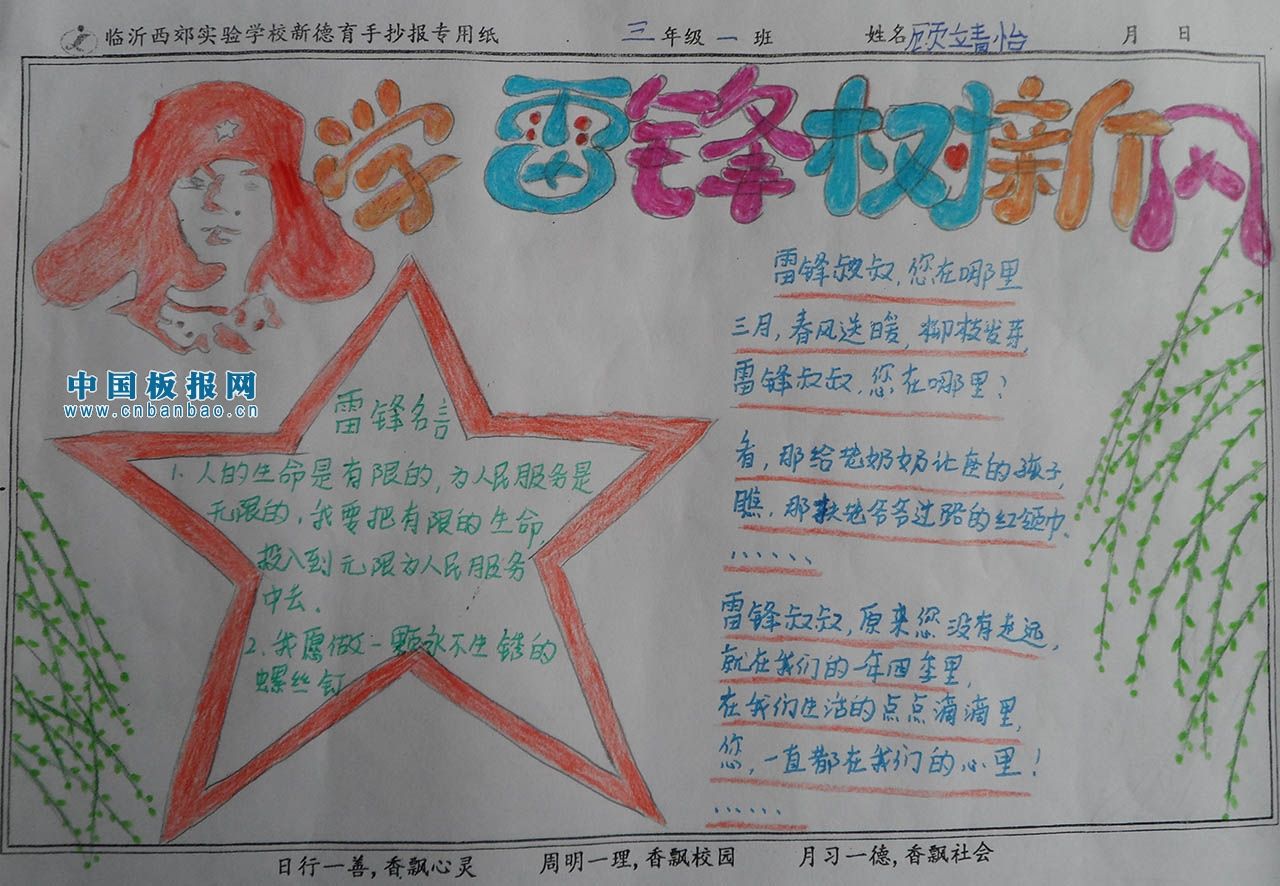 临沂西郊实验学校新德育手抄报专用纸 三年级一班 姓名顾靖怡 月 日
学雷锋树新风
雷锋叔叔,您在哪里
三月,春风送暖,柳枝发芽,
雷锋叔叔,您在哪里?
看,那给老奶奶让座的孩子,
瞧,那扶老爷爷过路的红领巾。
......
雷锋叔叔,原来您没有走远,
就在我们的一年四季里,
在我们生活的点点滴滴里,
您,一直都在我们的心里!
......
中国板报网
www.cnbanbao.cn
雷锋名言
1.人的生命是有限的,为人民服务是
无限的,我要把有限的生命,
投入到无限为人民服务
中去。
2.我愿做一颗永不生锈的
螺丝钉
日行一善,香飘心灵 周明一理,香飘校园 月习一德,香飘社会